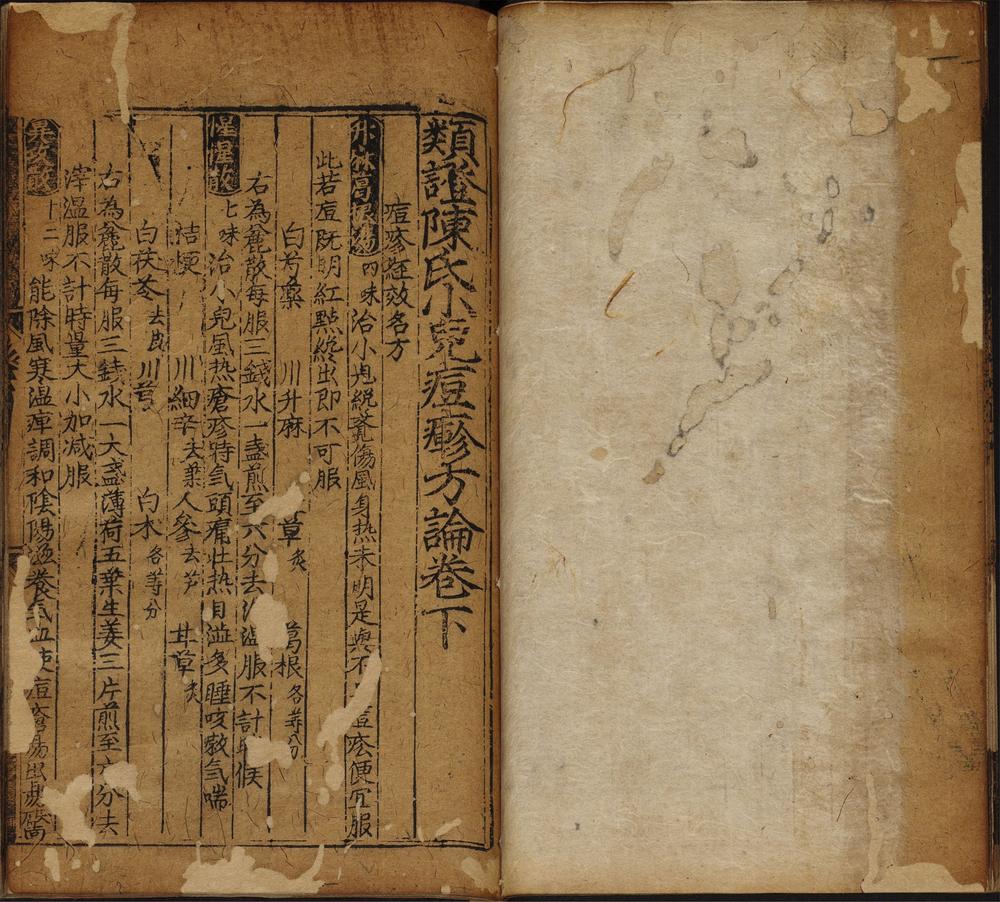 類證陳氏小兒痘疹方論卷下
痘疹經效名方
升麻葛根湯四味治小兒覺傷風身热未明是與不痘疹便宜服
此若痘既明紅點終出即不可服
白芍藥 川升麻 草炙 葛根各等分
右為麄散每服三錢水一盞煎至六分去溫服不計時候
惺惺散七味治小兒風热瘡疹時氣頭痛壯热目澁多睡咳嗽气喘
桔梗 川細辛去葉人參去芦 甘草炙
白茯苓去皮川芎 白术各等分
右為麄散每服三錢水一大盞薄荷五葉生姜三片煎至六分去
滓溫服不計時量大小加减服
異攻散十二味能除風寒温痺調和陰陽滋養气血使痘瘡易出